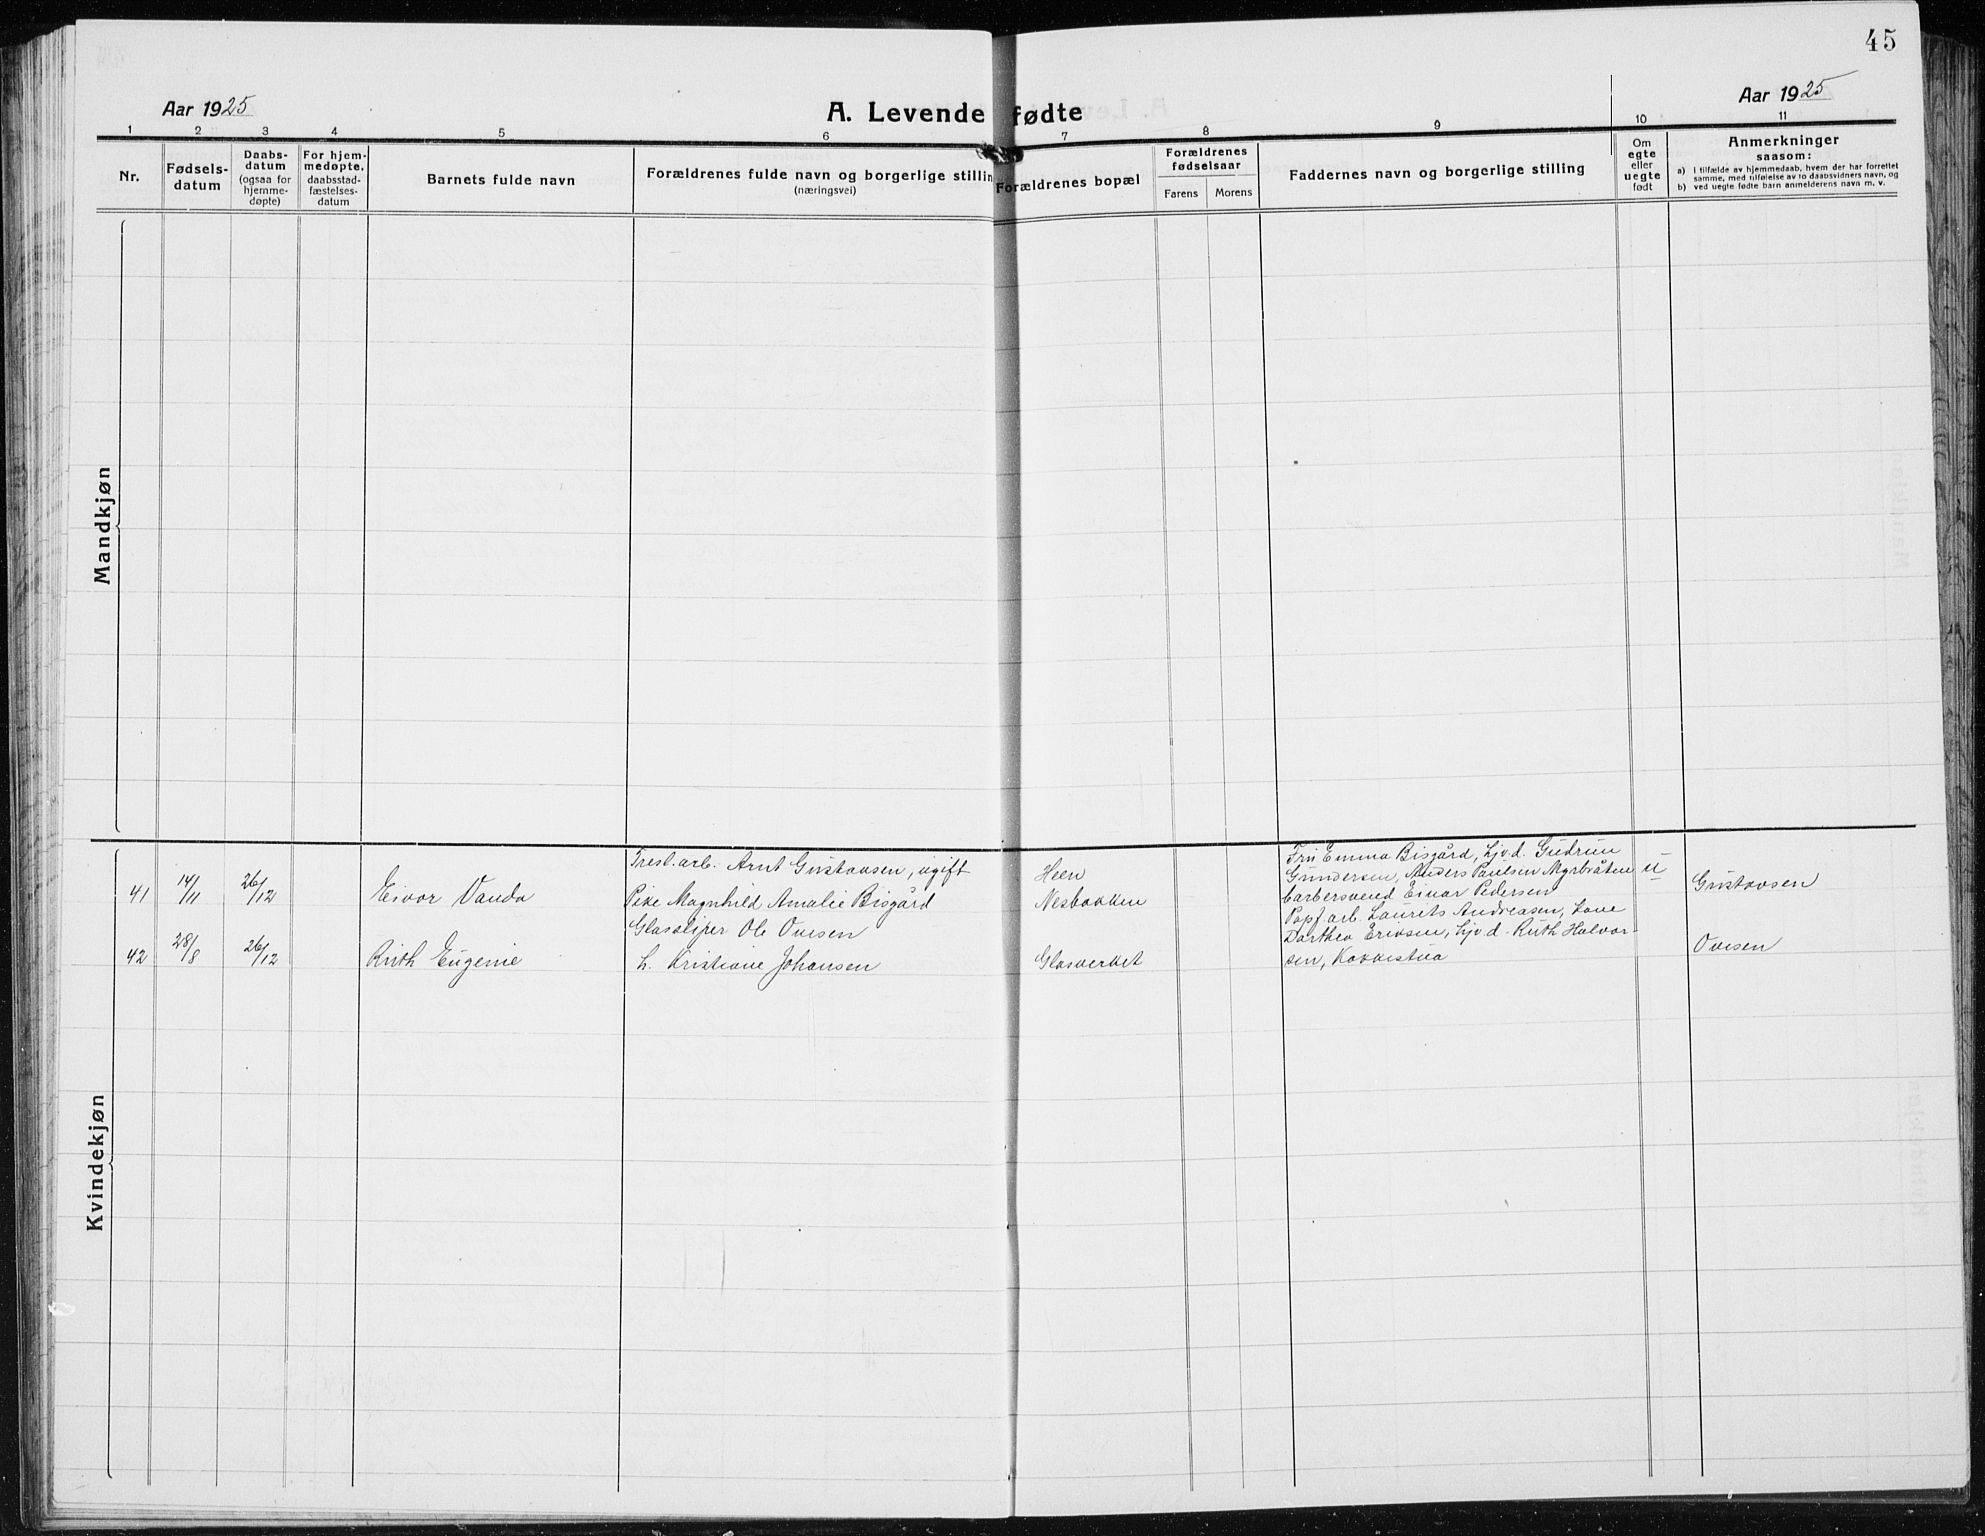 45
Aar 1925
A. Levende fødte
Aar 1925
1 2 3 4 5 6 7 8 9 10 11
Nr.
Fødsels-
datum
Daabs-
datum
(ogsaa for
hjemme-
døpte)
For hjem-
medøpte,
daabsstad-
fæstelses-
datum
Barnets fulde navn
Forældrenes fulde navn og borgerlige stillin
(næringsvei)
Forældrenes bopæl
Forældrenes
fødselsaar
Farens Morens
Faddernes navn og borgerlige stilling
Om
egte
eller
uegte
født
Anmerkninger
saasom:
a) I tilfælde av hjemmedaab, hvem der har forrettet
samme, med tilføielse av to daabsvidners navn, og
b) ved uegte fødte barn anmelderens navn m. v.
Mandkjøn
Kvindekjøn
41 14/11 26/12 Eivor Vanda
Tresl.arb. Arnt Gustavsen, ugift
Pike Magnhild Amalie Bisgård
Heen
Nesbakken
Fru Emma Bisgård, hjv.d. Gudrun
Gundersen, Anders Paulsen Myrbråten
barbersvend Einar Pedersen
u
Gustavsen
42 28/8 26/12 Ruth Eugenie
Glassliper Ole Ovesen
h. Kristiane Johansen
Glasverket
Papf.arb. Laurets Andreasen, Kone
Darthea Eriksen, hjv.d. Ruth Halvor-
sen, Kokkestua
Ovesen